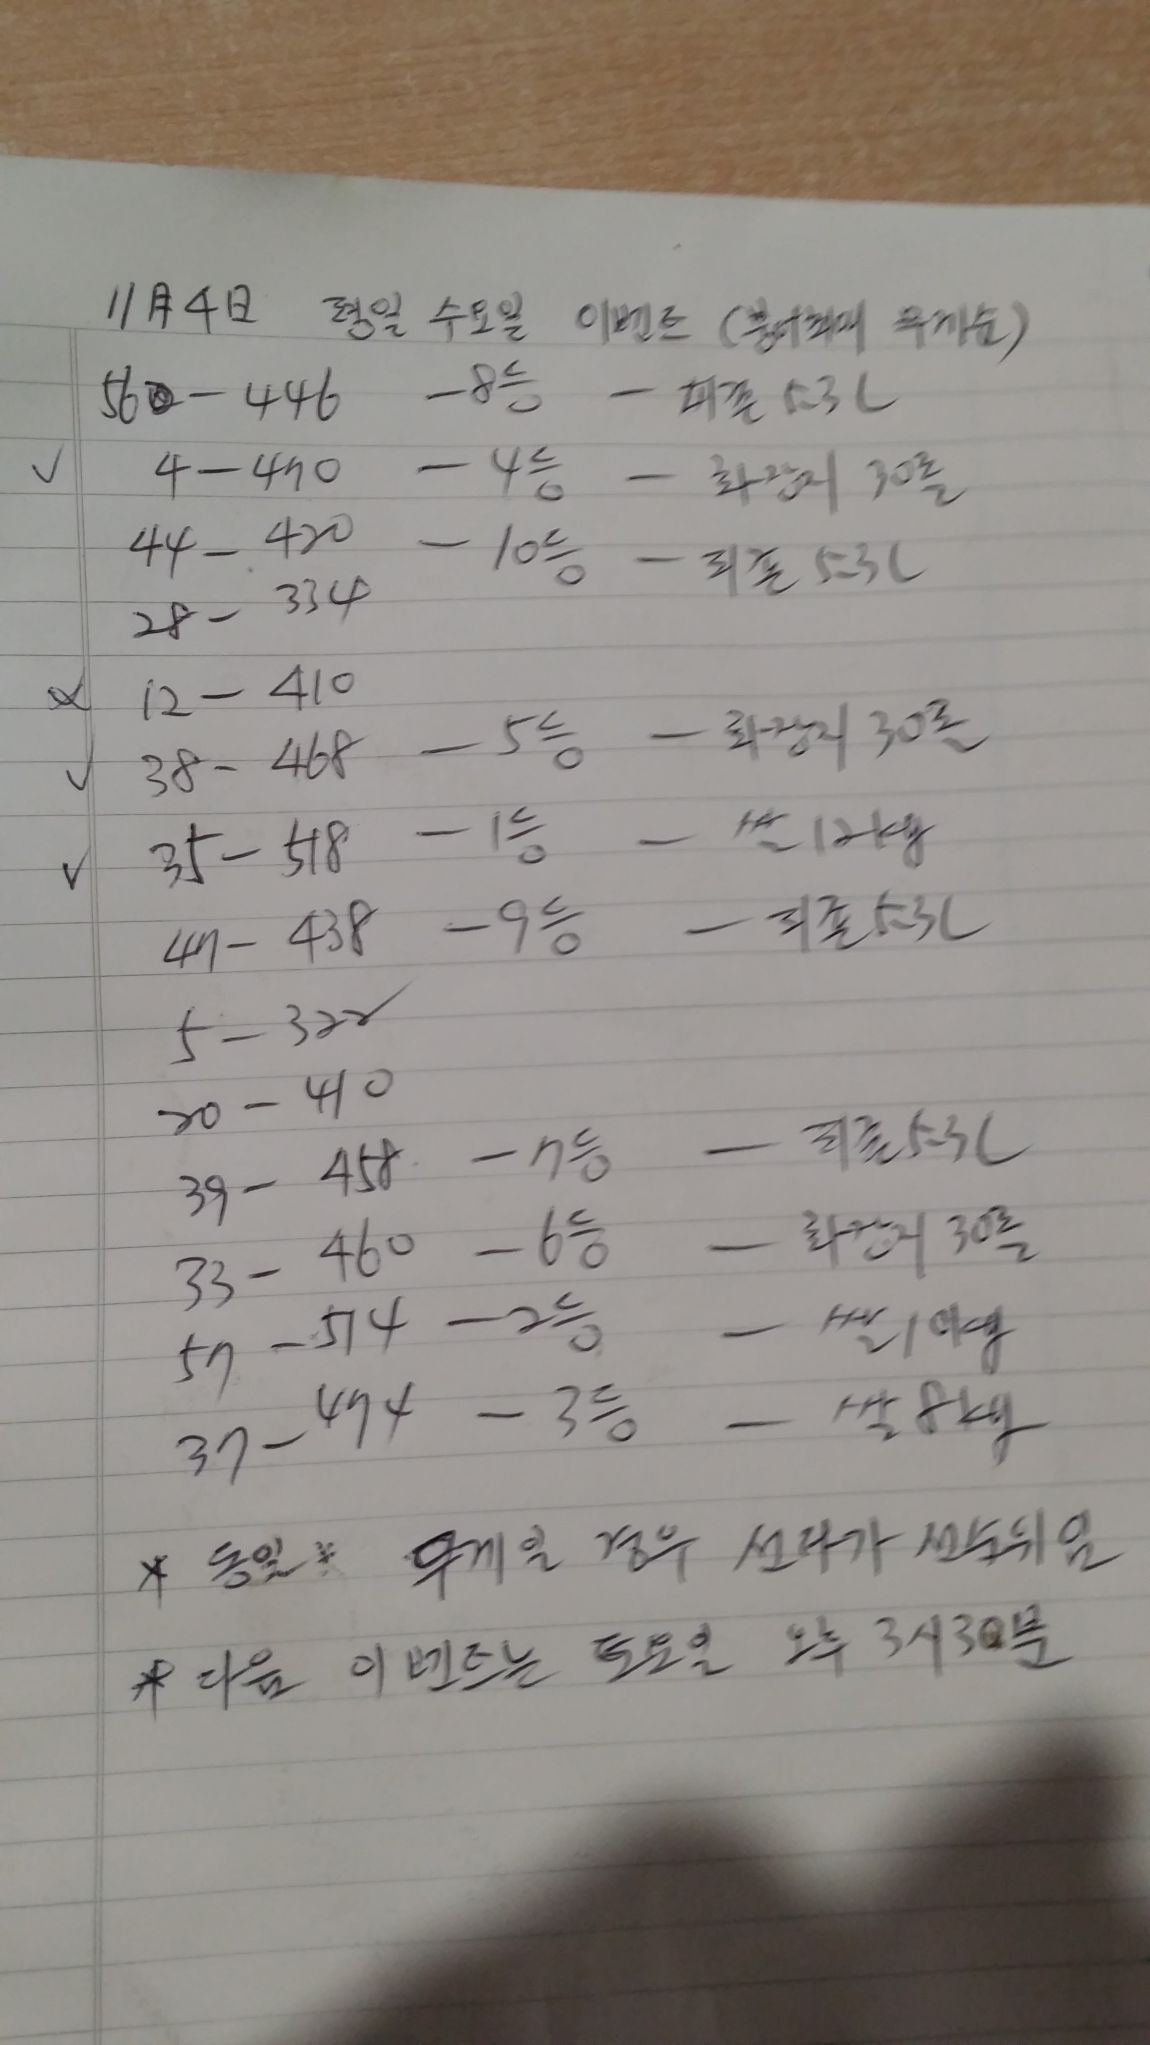 11月4日 평일 수요일 이벤트 (붕어최대 무게순)
56 - 446 - 8등 - 퍼퓸 5.3L
✓ 4 - 470 - 4등 - 화장지 30롤
44 - 420 - 10등 - 퍼퓸 5.3L
28 - 334
12 - 410
✓ 38 - 468 - 5등 - 화장지 30롤
✓ 35 - 518 - 1등 - 쌀 12kg
47 - 438 - 9등 - 퍼퓸 5.3L
5 - 322
20 - 410
39 - 458 - 7등 - 퍼퓸 5.3L
33 - 460 - 6등 - 화장지 30롤
57 - 514 - 2등 - 쌀 10kg
37 - 474 - 3등 - 쌀 8kg
* 동일 무게일 경우 선타가 선순위임
* 다음 이벤트는 토요일 오후 3시30분